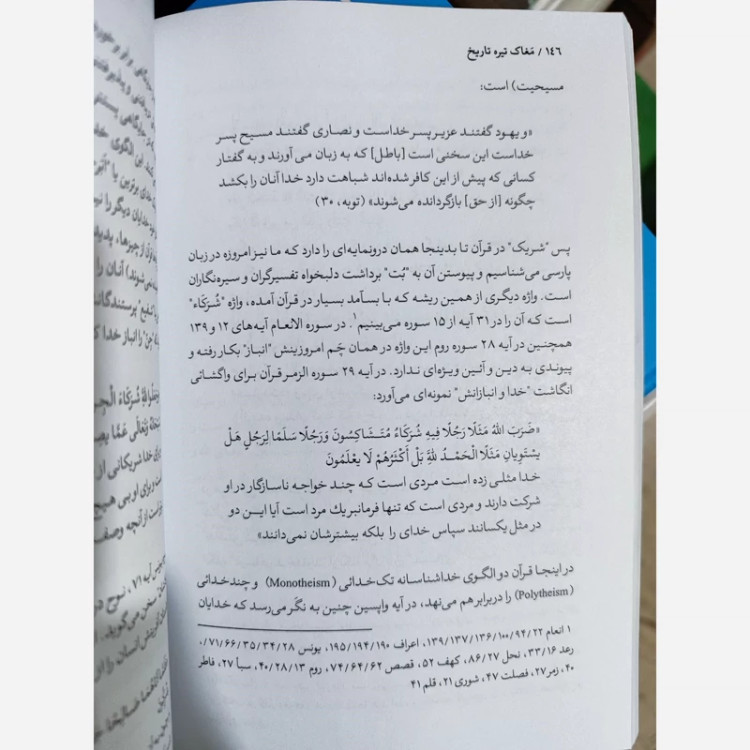 ۱۴۶ / مَغاک تیره تاریخ
مسیحیت) است:
«و یهود گفتند عزیر پسر خداست و نصاری گفتند مسیح پسر
خداست این سخنی است [باطل] که به زبان می آورند و به گفتار
کسانی که پیش از این کافر شده‌اند شباهت دارد خدا آنان را بکشد
چگونه [از حق] بازگردانده می‌شوند» (توبه، ۳۰)
پس "شریک" در قرآن تا بدینجا همان درونمایه‌ای را دارد که ما نیز امروزه در زبان
پارسی می‌شناسیم و پیوستن آن به "بُت" برداشت دلبخواه تفسیرگران و سیره‌نگاران
است. واژه دیگری از همین ریشه که با بسآمد بسیار در قرآن آمده، واژه "شُرَکَاء"
است که آن را در ۳۱ آیه از ۱۵ سوره می‌بینیم۱. در سوره الانعام آیه‌های ۱۲ و ۱۳۹
همچنین در آیه ۲۸ سوره روم این واژه در همان چَم امروزینش "انباز" بکار رفته و
پیوندی به دین و آئین ویژه‌ای ندارد. در آیه ۲۹ سوره الزمر قرآن برای واگشائی
انگاشت "خدا و انبازانش" نمونه‌ای می‌آورد:
«ضَرَبَ اللهُ مَثَلًا رَجُلًا فِيهِ شُرَكَاءُ مُتَشَاكِسُونَ وَرَجُلًا سَلَمًا لِرَجُلٍ هَلْ
يَسْتَوِيَانِ مَثَلًا الْحَمْدُ لِلَّهِ بَلْ أَكْثَرُهُمْ لَا يَعْلَمُونَ
خدا مثلی زده است مردی است که چند خواجه ناسازگار در او
شرکت دارند و مردی است که تنها فرمانبر یك مرد است آیا این دو
در مثل یکسانند سپاس خدای را بلکه بیشترشان نمی‌دانند»
در اینجا قرآن دو الگوی خداشناسانه تک‌خدائی (Monotheism) و چندخدائی
(Polytheism) را دربرابر هم می‌نهد، در آیه واپسین چنین به نگر می‌رسد که خدایان
۱ انعام ۱۳۹/۱۳۷/۱۳۶/۱۰۰/۹۴/۲۲، اعراف ۱۹۵/۱۹۴/۱۹۰، یونس ۷۱/۶۶/۳۵/۳۴/۲۸/،
رعد ۳۳/۱۶، نحل ۸۶/۲۷، کهف ۵۲، قصص ۷۴/۶۴/۶۲، روم ۴۰/۲۸/۱۳، سبأ ۲۷، فاطر
۴۰، زمر۲۷، فصلت ۴۷، شوری ۲۱، قلم ۴۱